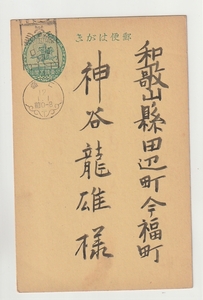 郵便はがき
和歌山縣田辺町今福町
神谷龍雄様